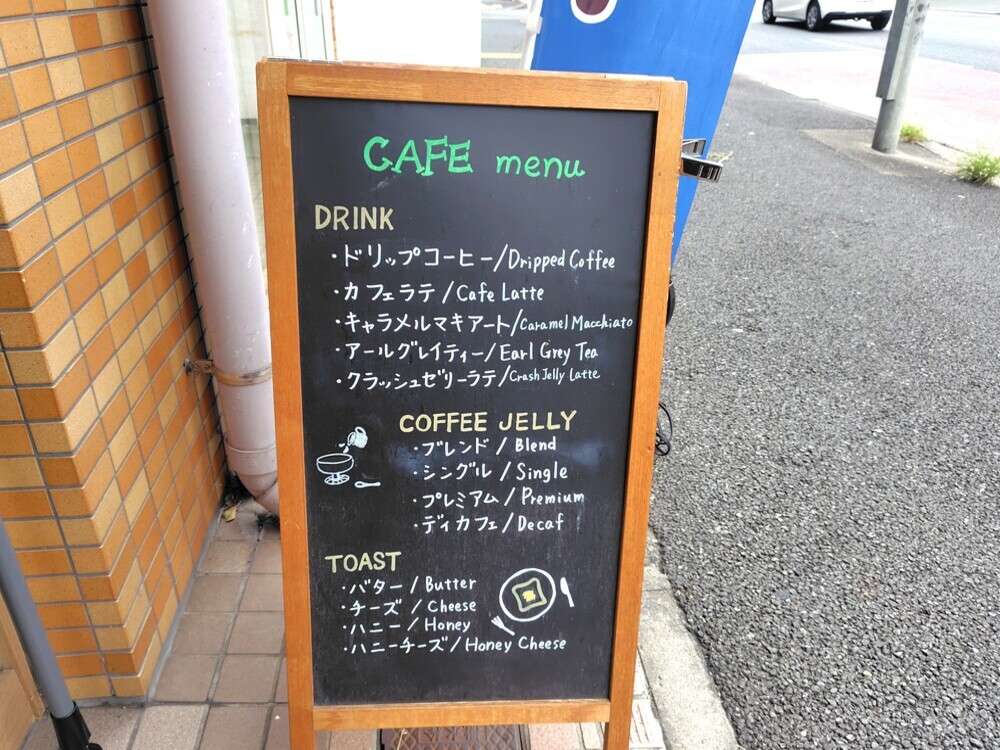 CAFE menu
DRINK
・ドリップコーヒー/Dripped Coffee
・カフェラテ/Cafe Latte
・キャラメルマキアート/Caramel Macchiato
・アールグレイティー/Earl Grey Tea
・クラッシュゼリーラテ/Crash Jelly Latte
COFFEE JELLY
・ブレンド/Blend
・シングル/Single
・プレミアム/Premium
・ディカフェ/Decaf
TOAST
・バター/Butter
・チーズ/Cheese
・ハニー/Honey
・ハニーチーズ/Honey Cheese